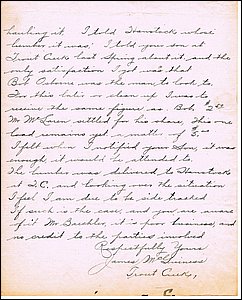 hauling it. I told Hanstock whose
lumber it was. I told your son at
Trout Creek last Spring about it, and the
only satisfaction I got was that
Bob Osborne was the man to look to.
In this late so clean up I was to
receive the same figure as Bob,
Mr McLaren settled for his share. This one
load remains yet a matter of
I felt when I notified your son, it was
enough, it would be attended to.
The lumber was delivered to Hanstock
at T.C. and looking over the situation
I feel I am due to be side tracked
If such is the case, and you are aware
of it Mr. Baechler, it is poor business, and
no credit to the parties involved
Respectfully Yours
James McGuiness
Trout Creek,